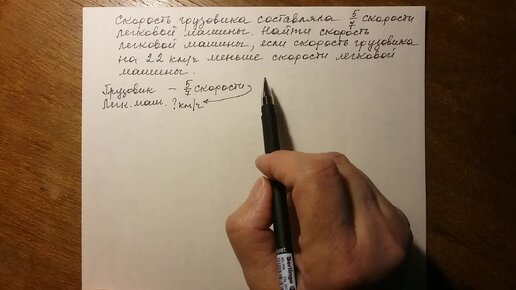 Скорость грузовика составляла 5/7 скорости
легковой машины. Найти скорость
легковой машины, если скорость грузовика
на 22 км/ч меньше скорости легковой
машины.
Грузовик – 5/7 скорости
Легк. маш. ? км/ч
Berlingo